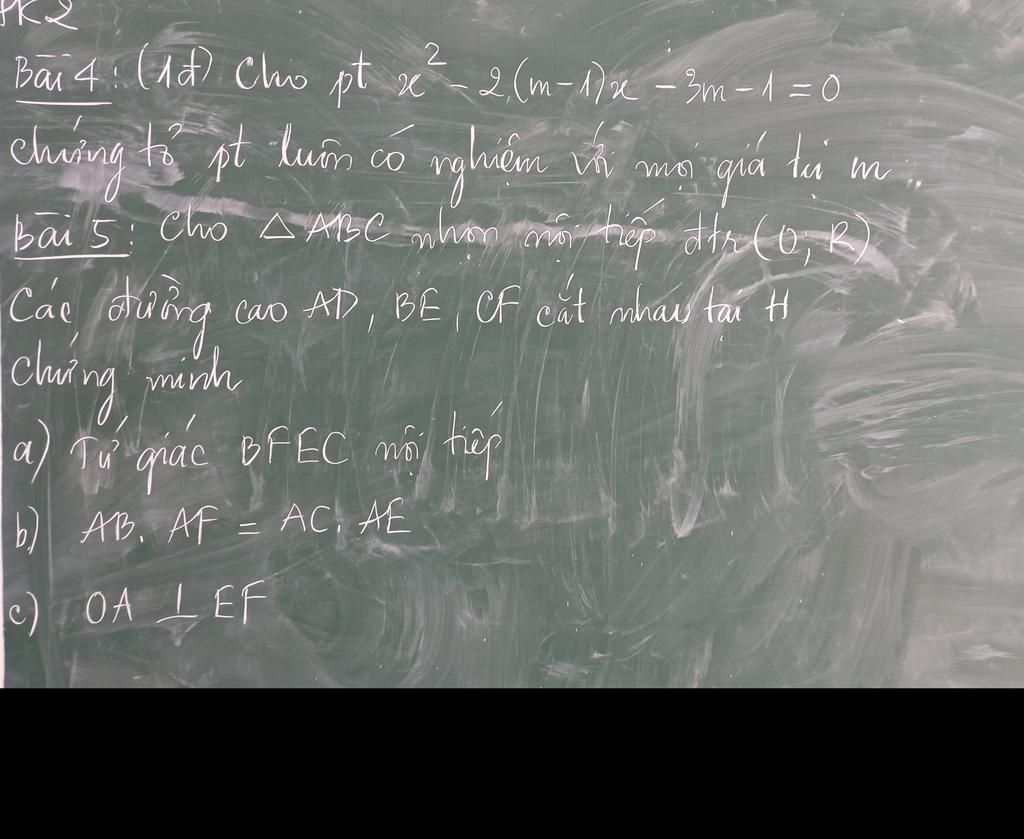 HK2
Bài 4: (1đ) Cho pt x² - 2.(m-1)x - 3m - 1 = 0
chứng tỏ pt luôn có nghiệm với mọi giá trị m.
Bài 5: Cho △ABC nhọn nội tiếp đtr (O; R)
Các đường cao AD, BE, CF cắt nhau tại H
Chứng minh
a) Tứ giác BFEC nội tiếp
b) AB. AF = AC. AE
c) OA ⊥ EF